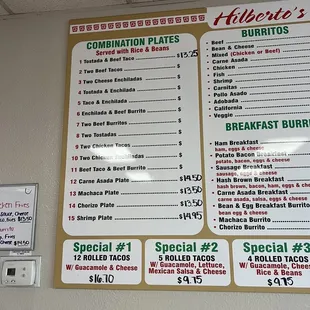 Hilberto's
COMBINATION PLATES
Served with Rice & Beans
1 Tostada & Beef Taco $13.25
2 Two Beef Tacos $
3 Two Cheese Enchiladas $
4 Tostada & Enchilada $
5 Taco & Enchilada $
6 Enchilada & Beef Burrito $
7 Two Beef Burritos $
8 Two Tostadas $
9 Two Chicken Tacos $
10 Two Chicken Enchiladas $
11 Beef Taco & Beef Burrito $
12 Carne Asada Plate $14.50
13 Machaca Plate $13.50
14 Chorizo Plate $13.50
15 Shrimp Plate $14.95
BURRITOS
Beef
Bean & Cheese
Mixed (Chicken or Beef)
Carne Asada
Chicken
Fish
Shrimp
Carnitas
Pollo Asado
Adobada
California
Veggie
BREAKFAST BURRI
Ham Breakfast
ham, eggs & cheese
Potato Bacon Breakfast
potato, bacon, eggs & cheese
Sausage Breakfast
sausage, eggs & cheese
Hash Brown Breakfast
hash brown, bacon, ham, eggs & cheese
Carne Asada Breakfast
carne asada, salsa, eggs & cheese
Bean & Egg Breakfast
bean, egg & cheese
Machaca Burrito
Chorizo Burrito
Special #1
12 ROLLED TACOS
W/ Guacamole & Cheese
$16.70
Special #2
5 ROLLED TACOS
W/ Guacamole, Lettuce,
Mexican Salsa & Cheese
$9.75
Special #3
4 ROLLED TACOS
W/ Guacamole, Cheese
Rice & Beans
$9.75
Fries
Cheese
Fries
& Cheese
$14.50